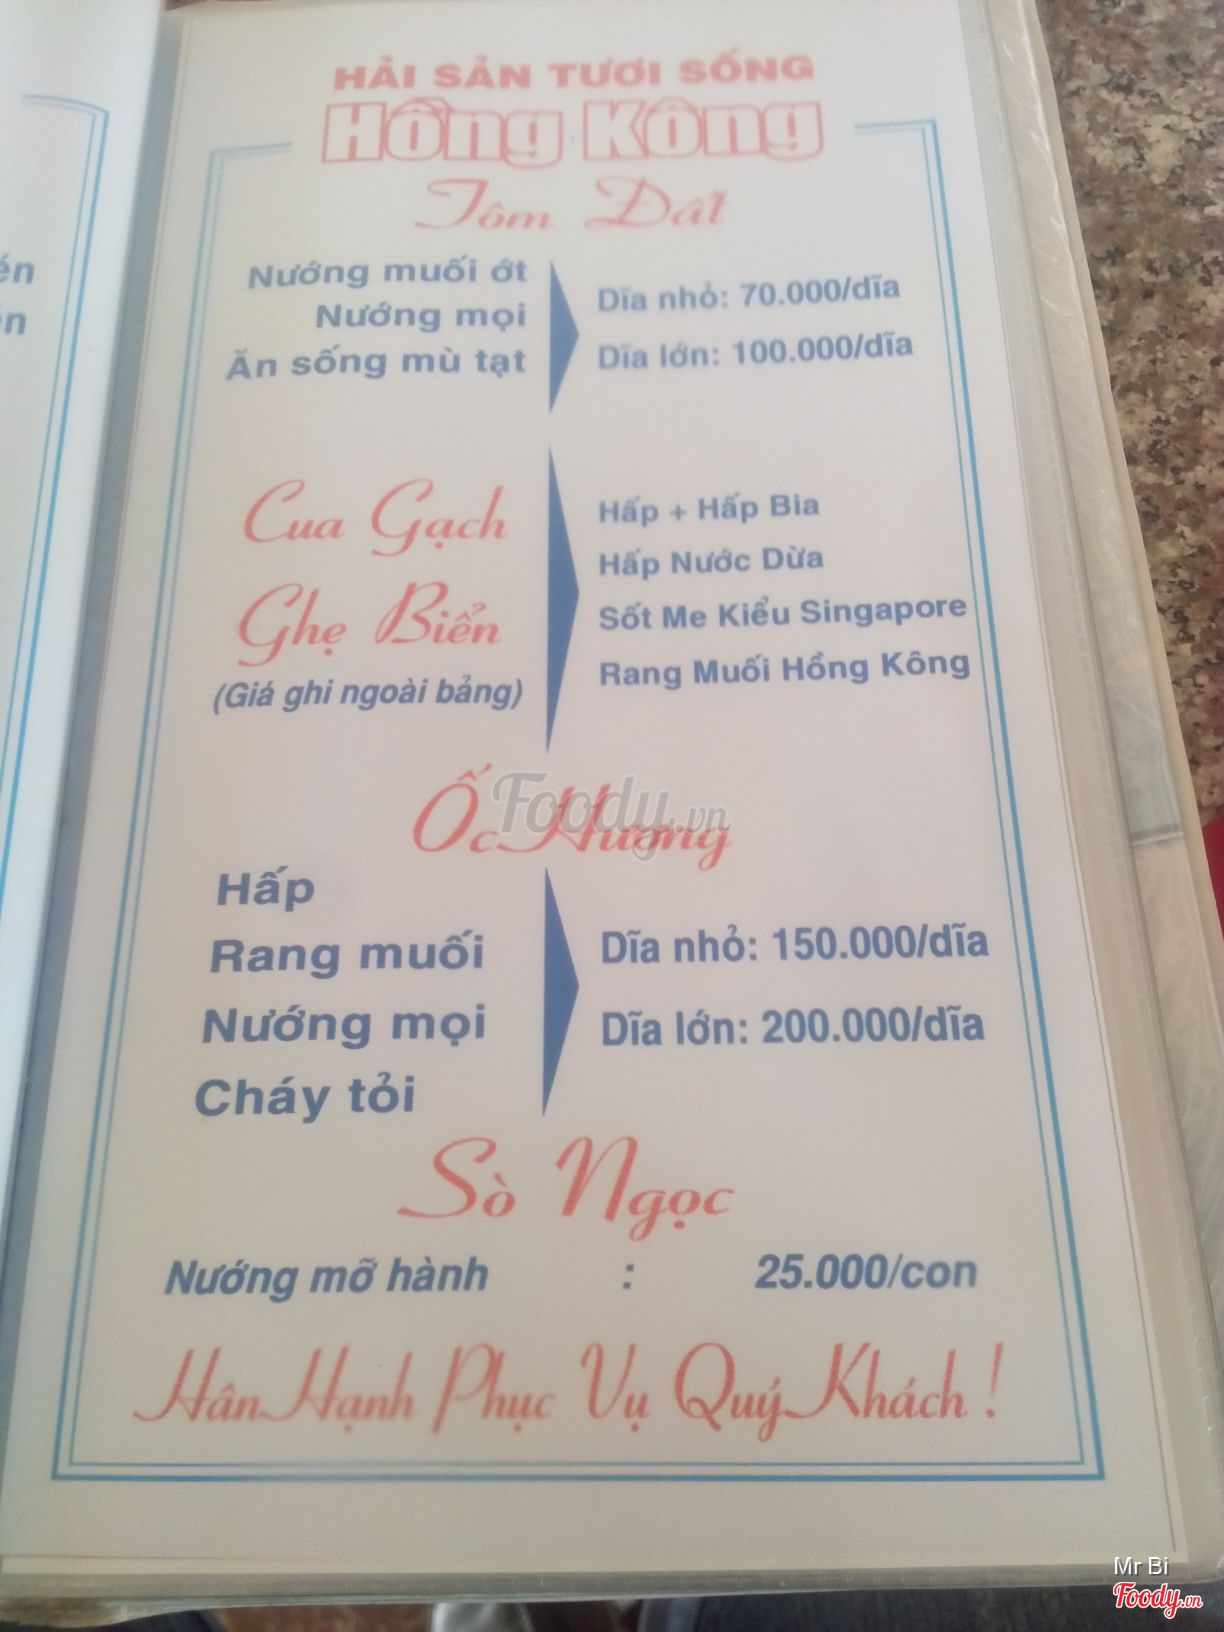 HẢI SẢN TƯƠI SỐNG
Hồng Kông
Tôm Đất
Nướng muối ớt
Nướng mọi
Ăn sống mù tạt
Dĩa nhỏ: 70.000/dĩa
Dĩa lớn: 100.000/dĩa
Cua Gạch
Ghẹ Biển
(Giá ghi ngoài bảng)
Hấp + Hấp Bia
Hấp Nước Dừa
Sốt Me Kiểu Singapore
Rang Muối Hồng Kông
Ốc Hương
Foody.vn
Hấp
Rang muối
Nướng mọi
Cháy tỏi
Dĩa nhỏ: 150.000/dĩa
Dĩa lớn: 200.000/dĩa
Sò Ngọc
Nướng mỡ hành : 25.000/con
Hân Hạnh Phục Vụ Quý Khách !
Mr Bi
Foody.vn